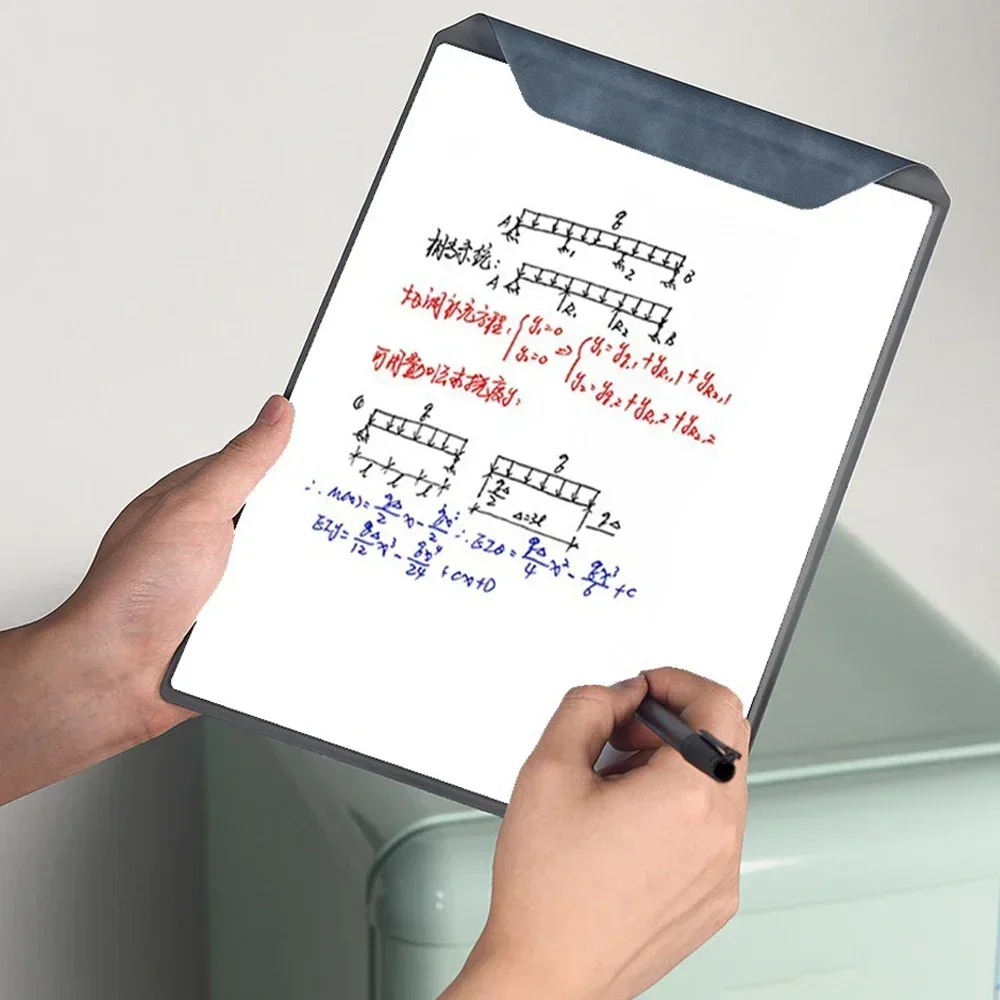 q
A 1 2 B
相当系统:
A R₁ R₂ B
协调补充方程: { y₁=0 y₂=0 ⇒ { y₁=y_{q,1}+y_{R₁,1}+y_{R₂,1}
y₂=y_{q,2}+y_{R₁,2}+y_{R₂,2}
可用叠加法求挠度y:
① q
q
l l l
q△/2 △=3l q△
∴ M(x)=q△/2 x-qx²/2 ∴ EIθ=q△/4 x²-qx³/6+c
EIy=q△/12 x³-qx⁴/24+cx+D